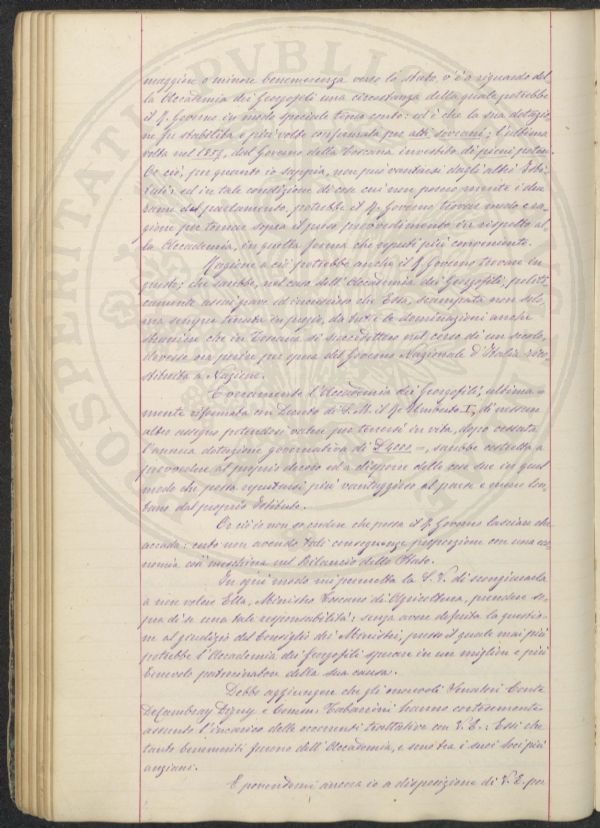 maggiore o minore benemerenza verso lo Stato, v'è a riguardo del-
la Accademia dei Georgofili una circostanza della quale potrebbe
il R. Governo in modo speciale tener conto: ed è che la sua dotazio-
ne fu stabilita e più volte confermata per atti sovrani; l'ultima
volta nel 1859, dal Governo della Toscana investito di pieni poteri.
Or ciò, per quanto io sappia, non può vantarsi dagli altri Isti-
tuti: ed in tale condizione di cose cui non posson niente i
del parlamento, potrebbe il R. Governo trovar modo e ra-
gione per tornar sopra il preso provvedimento in rispetto al-
la Accademia, in quella forma che reputi più conveniente.
Ragione a ciò potrebbe anche il R. Governo trovare in
questo; che sarebbe, nel caso dell'Accademia dei Georgofili, politi-
camente assai grave ed increscioso che Essa, scampata non solo,
ma sempre tenuta in pregio, da tutte le dominazioni anche
straniere che in Toscana si succedettero nel corso di un secolo,
dovesse ora perire per opera del Governo Nazionale d'Italia rico-
stituita a Nazione.
E veramente l'Accademia dei Georgofili, ultima-
mente riformata con Decreto di S. M. il Re Umberto I, di nessun
altro assegno potendosi valere per tenersi in vita, dopo cessata
l'annua dotazione governativa di £ 4000 =, sarebbe costretta a
provvedere al proprio decoro ed a disporre delle cose sue in quel
modo che possa reputarsi più vantaggioso al paese e meno lon-
tano dal proprio Istituto.
Or ciò io non so credere che possa il R. Governo lasciare che
accada: certo non avendo tali conseguenze proporzione con una eco-
nomia così meschina nel Bilancio dello Stato.
In ogni modo mi permetta la S. V. di scongiurarla
a non volere Ella, Ministro Toscano di Agricoltura, prendere so-
pra di se una tale responsabilità; senza avere deferita la questio-
ne al giudizio del Consiglio dei Ministri, presso il quale mai più
potrebbe l'Accademia dei Georgofili sperare in un migliore e più
benevolo patrocinatore della sua causa.
Debbo aggiungere che gli onorevoli Senatori Conte
De Cambray Digny e Comm. Tabarrini hanno cortesemente
assunto l'incarico delle occorrenti trattative con V. E.: Essi che
tanto benemeriti furono dell'Accademia, e sono tra i suoi soci più
anziani.
E ponendomi ancora io a disposizione di V. E. per